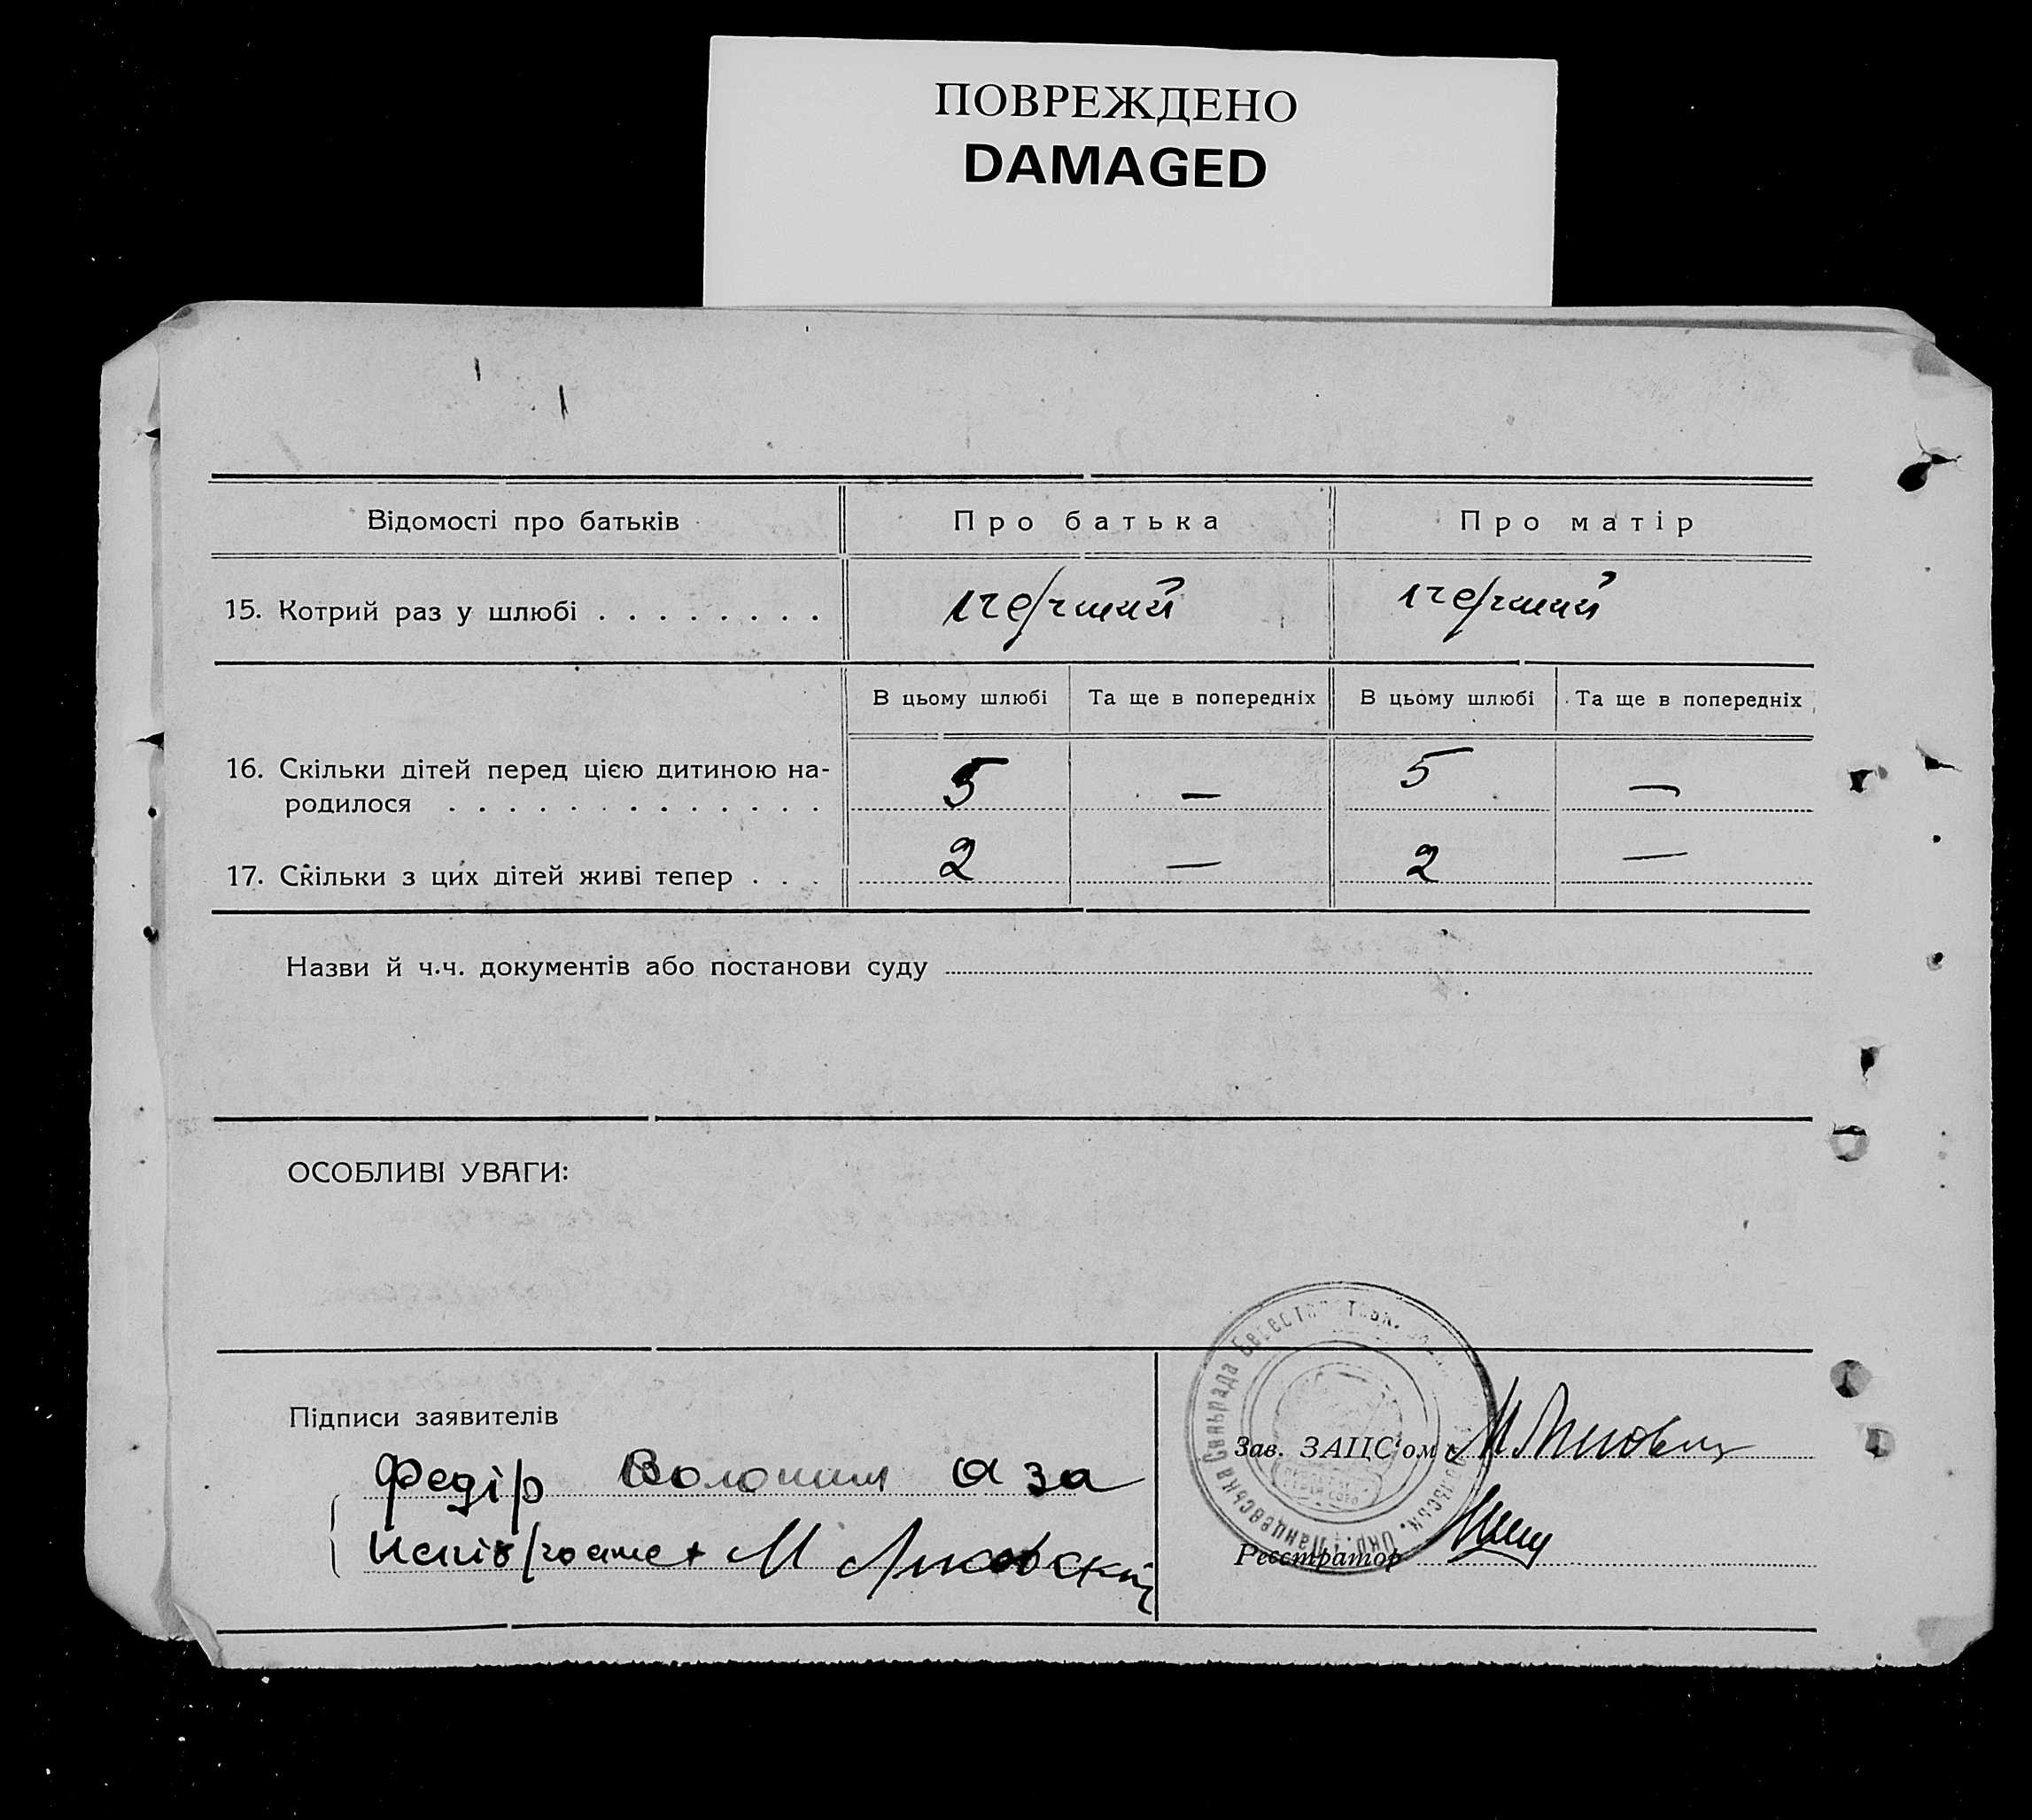 ПОВРЕЖДЕНО
DAMAGED
Відомості про батьків
Про батька
Про матір
15. Котрий раз у шлюбі . . . . . . . .
перший
перший
В цьому шлюбі
Та ще в попередніх
В цьому шлюбі
Та ще в попередніх
16. Скільки дітей перед цією дитиною на-
родилося . . . . . . . . . . . . .
5
—
5
—
17. Скільки з цих дітей живі тепер . . .
2
—
2
—
Назви й ч.ч. документів або постанови суду
ОСОБЛИВІ УВАГИ:
Підписи заявителів
Федір Волошин а за
М
Зав. ЗАЦС'ом
Реєстратор
Сельрада
Окр.